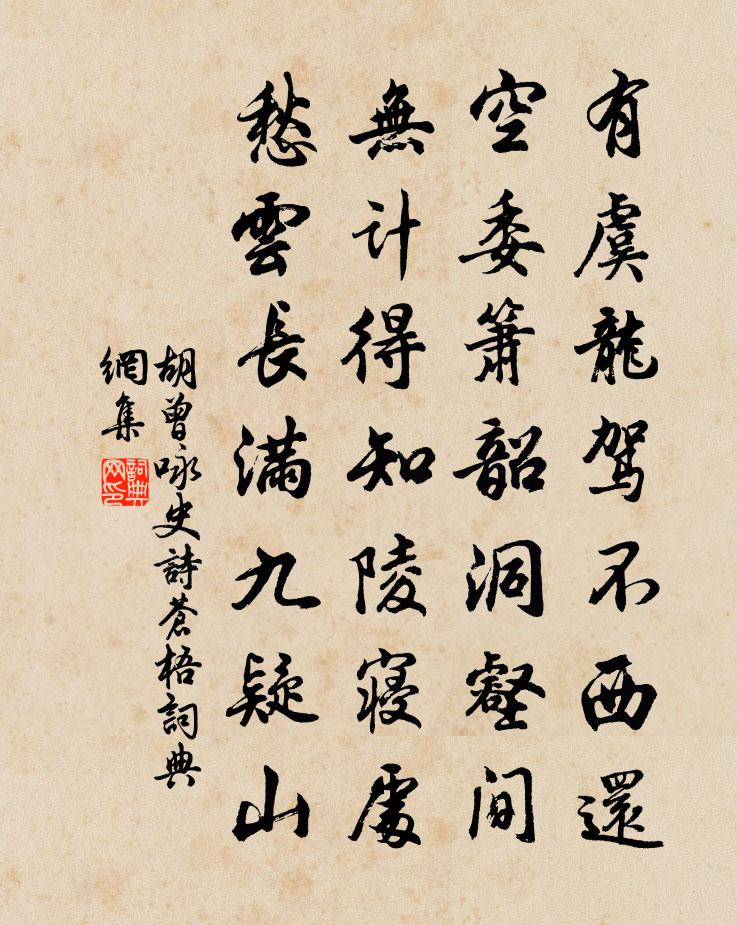 有虞龍駕不西還
空委簫韶洞壑間
無計得知陵寝處
愁雲長滿九疑山
胡曾咏史詩蒼梧詞典
網集
詞典网印